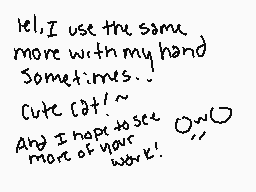 lel, I use the same
more with my hand
sometimes..
cute cat! ~
And I hope to see
more of your
work!
OwO